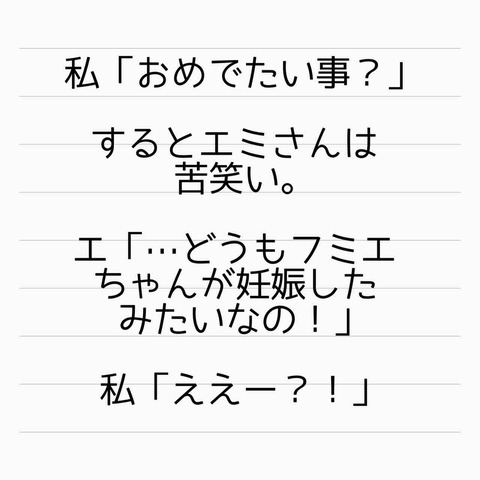 私「おめでたい事？」
するとエミさんは
苦笑い。
エ「…どうもフミエ
ちゃんが妊娠した
みたいなの！」
私「ええー？！」